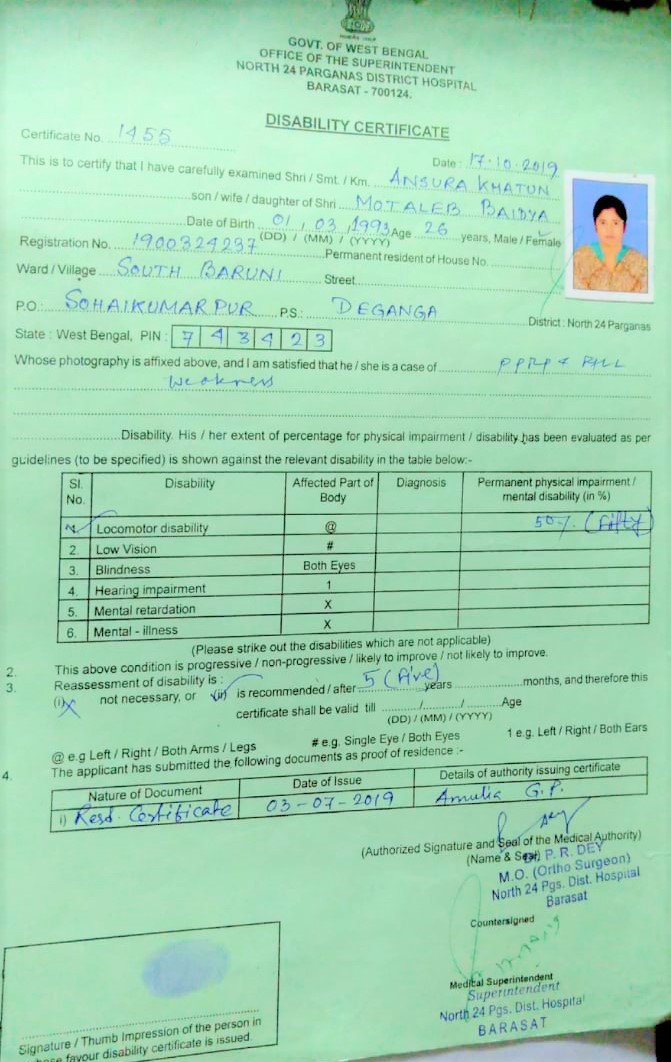 GOVT. OF WEST BENGAL
OFFICE OF THE SUPERINTENDENT
NORTH 24 PARGANAS DISTRICT HOSPITAL
BARASAT - 700124.
DISABILITY CERTIFICATE
Certificate No. 1455
Date : 17-10-2019
This is to certify that I have carefully examined Shri / Smt. / Km. ANSURA KHATUN
son / wife / daughter of Shri MOTALEB BAIDYA
Date of Birth 01 / 03 / 1993 Age 26 years, Male / Female
(DD) / (MM) / (YYYY)
Registration No. 1900324237 Permanent resident of House No.
Ward / Village SOUTH BARUNI Street
P.O.: SOHAIKUMARPUR P.S.: DEGANGA District : North 24 Parganas
State : West Bengal, PIN : 743423
Whose photography is affixed above, and I am satisfied that he / she is a case of PPRP
Weakness
Disability. His / her extent of percentage for physical impairment / disability has been evaluated as per
guidelines (to be specified) is shown against the relevant disability in the table below:-
Sl. No. Disability Affected Part of Body Diagnosis Permanent physical impairment / mental disability (in %)
Locomotor disability @ 50% (Fifty)
2. Low Vision #
3. Blindness Both Eyes
4. Hearing impairment 1
5. Mental retardation X
6. Mental - illness X
(Please strike out the disabilities which are not applicable)
2. This above condition is progressive / non-progressive / likely to improve / not likely to improve.
3. Reassessment of disability is :
(i) not necessary, or (ii) is recommended / after 5 (Five) years months, and therefore this
certificate shall be valid till / / Age
(DD) / (MM) / (YYYY)
@ e.g Left / Right / Both Arms / Legs # e.g. Single Eye / Both Eyes 1 e.g. Left / Right / Both Ears
4. The applicant has submitted the following documents as proof of residence :-
Nature of Document Date of Issue Details of authority issuing certificate
i) Resd. Certificate 03-07-2019 Amulia G.P.
(Authorized Signature and Seal of the Medical Authority)
(Name & Seal) P. R. DEY
M.O. (Ortho Surgeon)
North 24 Pgs. Dist. Hospital
Barasat
Countersigned
Medical Superintendent
Superintendent
North 24 Pgs. Dist. Hospital
BARASAT
Signature / Thumb Impression of the person in
favour disability certificate is issued.